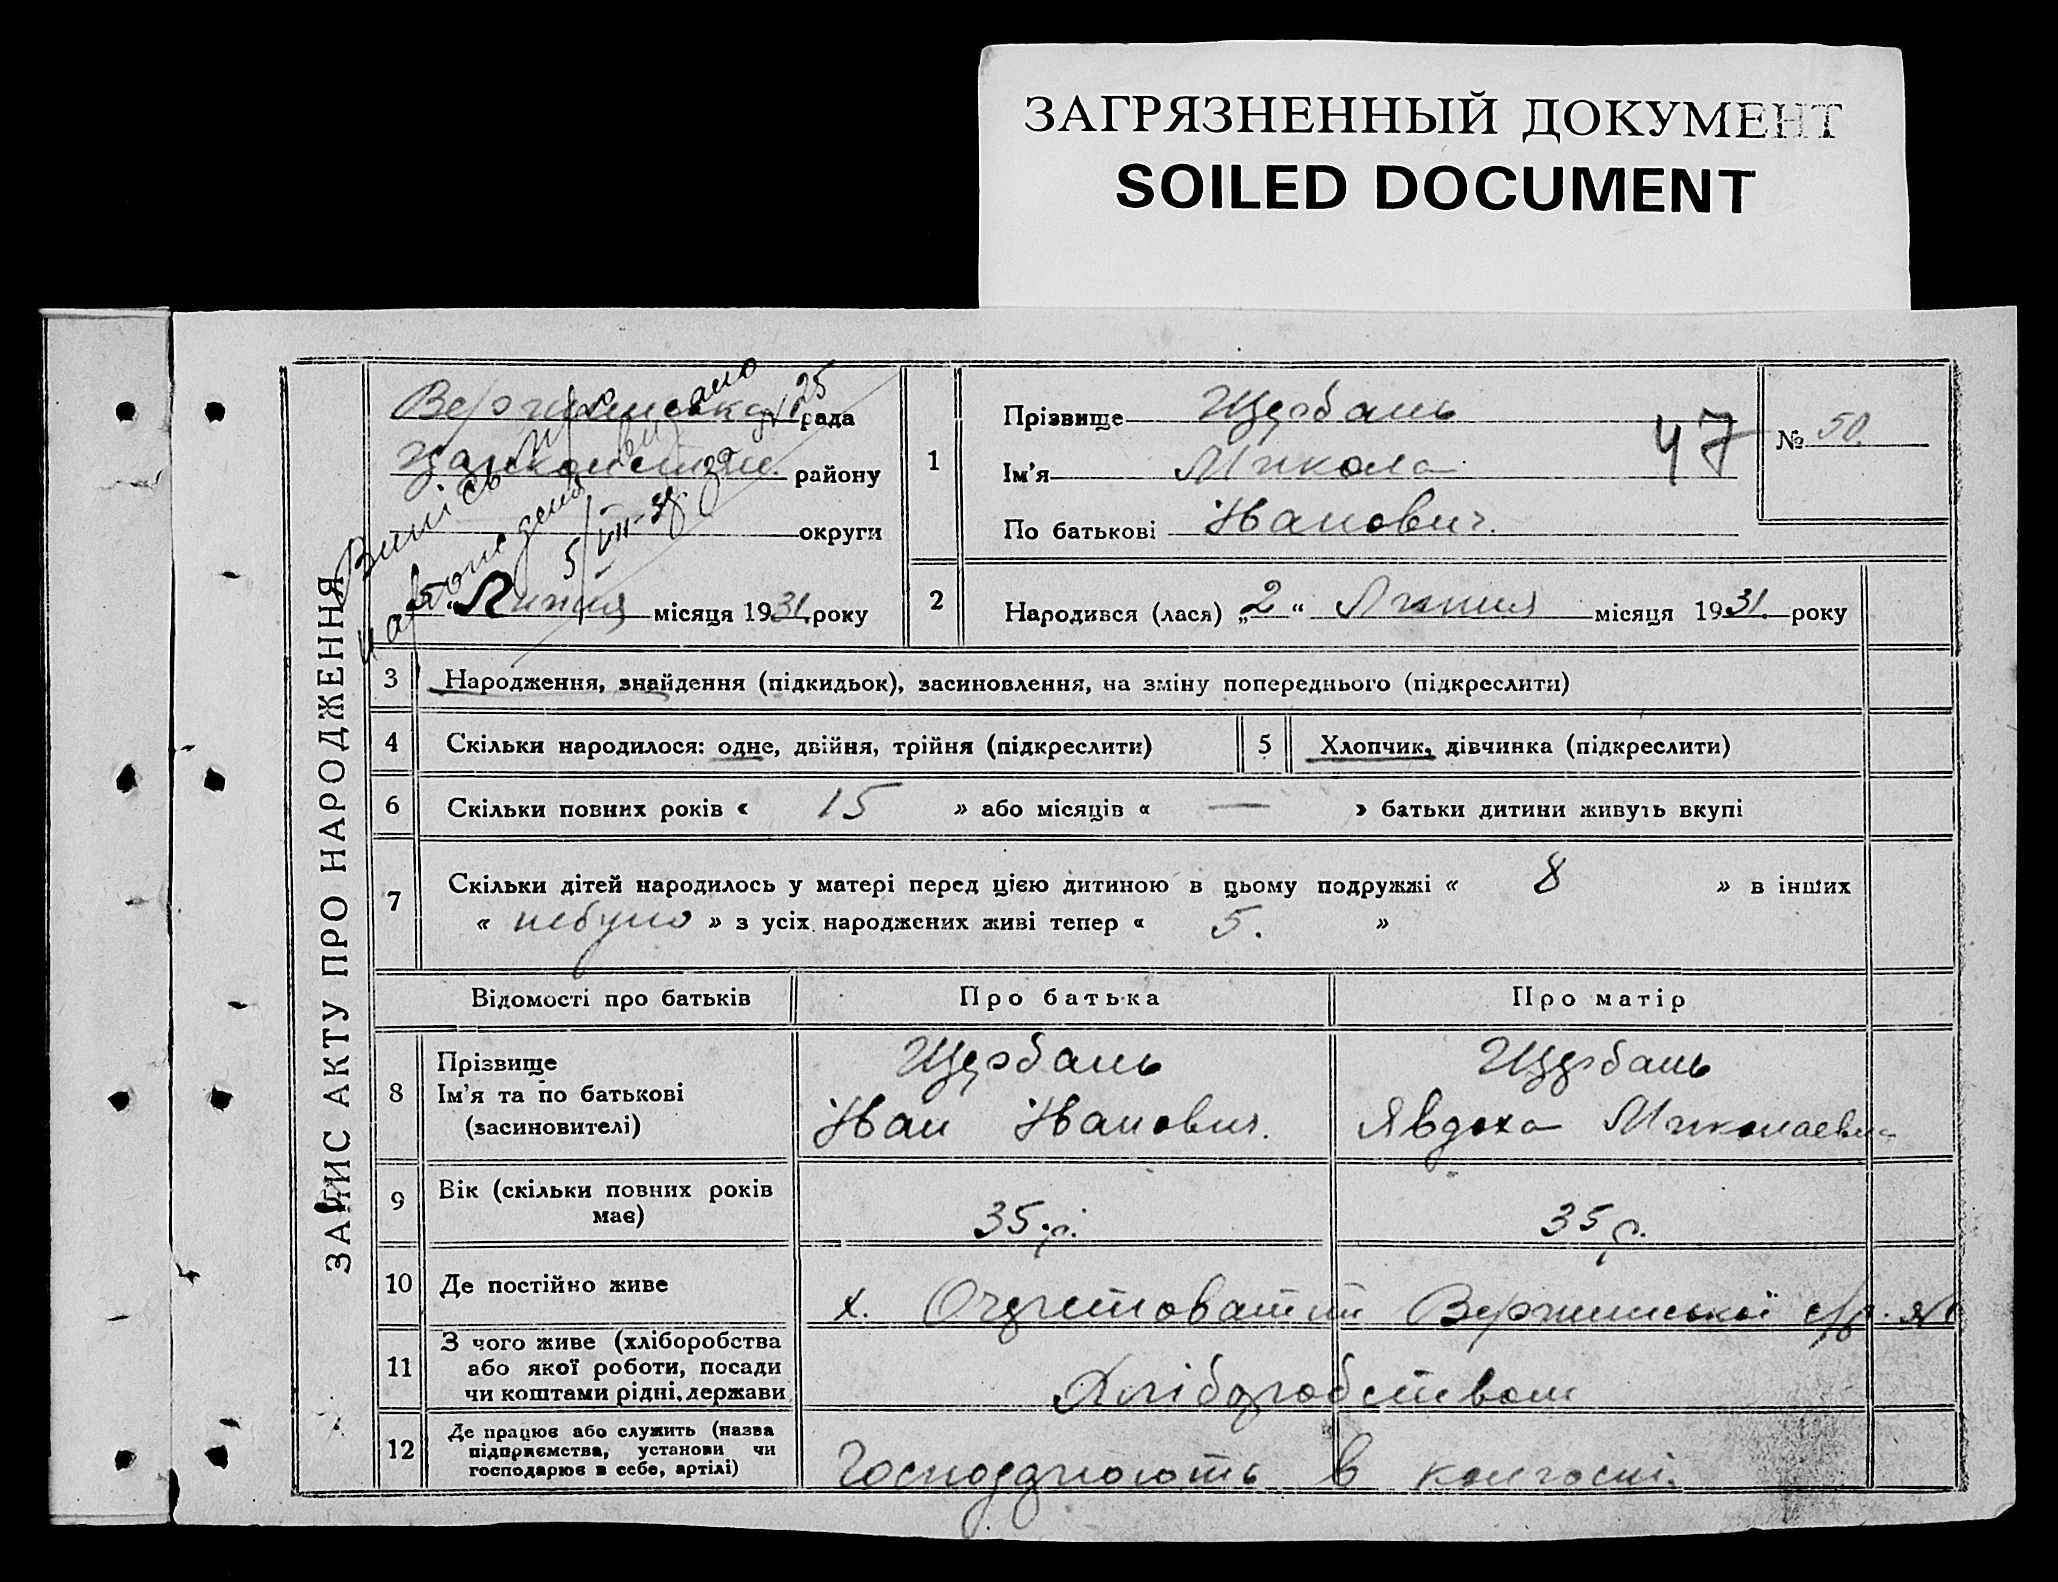 ЗАГРЯЗНЕННЫЙ ДОКУМЕНТ
SOILED DOCUMENT
ЗАПИС АКТУ ПРО НАРОДЖЕННЯ
рада
району
округи
5/VIII-38
„5“ Липня місяця 1931 року
1
Прізвище Щербань
Ім’я Микола
По батькові Іванович.
47
№ 50.
2 Народився (лася) „2“ Липня місяця 1931. року
3 Народження, знайдення (підкидьок), засиновлення, на зміну попереднього (підкреслити)
4 Скільки народилося: одне, двійня, трійня (підкреслити)
5 Хлопчик, дівчинка (підкреслити)
6 Скільки повних років « 15 » або місяців « — » батьки дитини живуть вкупі
7 Скільки дітей народилось у матері перед цією дитиною в цьому подружжі « 8 » в інших
« небуло » з усіх народжених живі тепер « 5. »
Відомості про батьків
Про батька
Про матір
8 Прізвище
Ім’я та по батькові
(засиновителі)
Щербань
Іван Іванович.
Щербань
Явдоха Миколаевна
9 Вік (скільки повних років
має)
35 р.
35 р.
10 Де постійно живе
х. Очеретоватий
11 З чого живе (хліборобства
або якої роботи, посади
чи коштами рідні, держави
Хліборобством
12 Де працює або служить (назва
підприємства, установи чи
господарює в себе, артілі)
Господарюють в колгоспі.